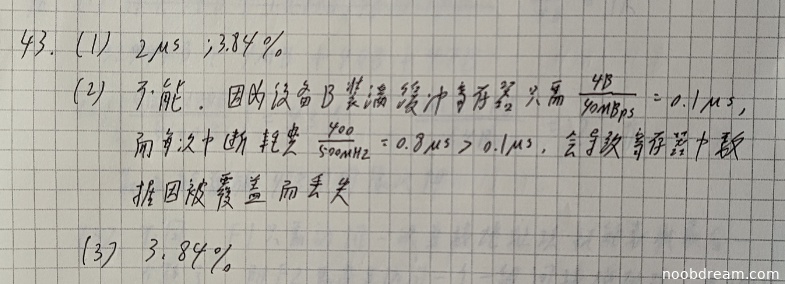 43. (1) 2μs ; 3.84%
(2) 不能. 因为设备B装满缓冲寄存器只需 4B/40MBps = 0.1μs,
而每次中断耗费 400/500MHz = 0.8μs > 0.1μs. 会导致寄存器中数
据因被覆盖而丢失
(3) 3.84%
noobdream.com